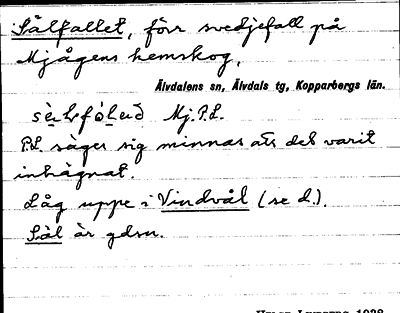 Sälfallet, förr svedjefall på
Mjågens hemskog,
Älvdalens sn, Älvdals tg, Kopparbergs län.
Mj. P.L.
P.L. säger sig minnas att det varit
inhägnat.
Låg uppe i Vindvål (se d.).
Säl är gdsn.